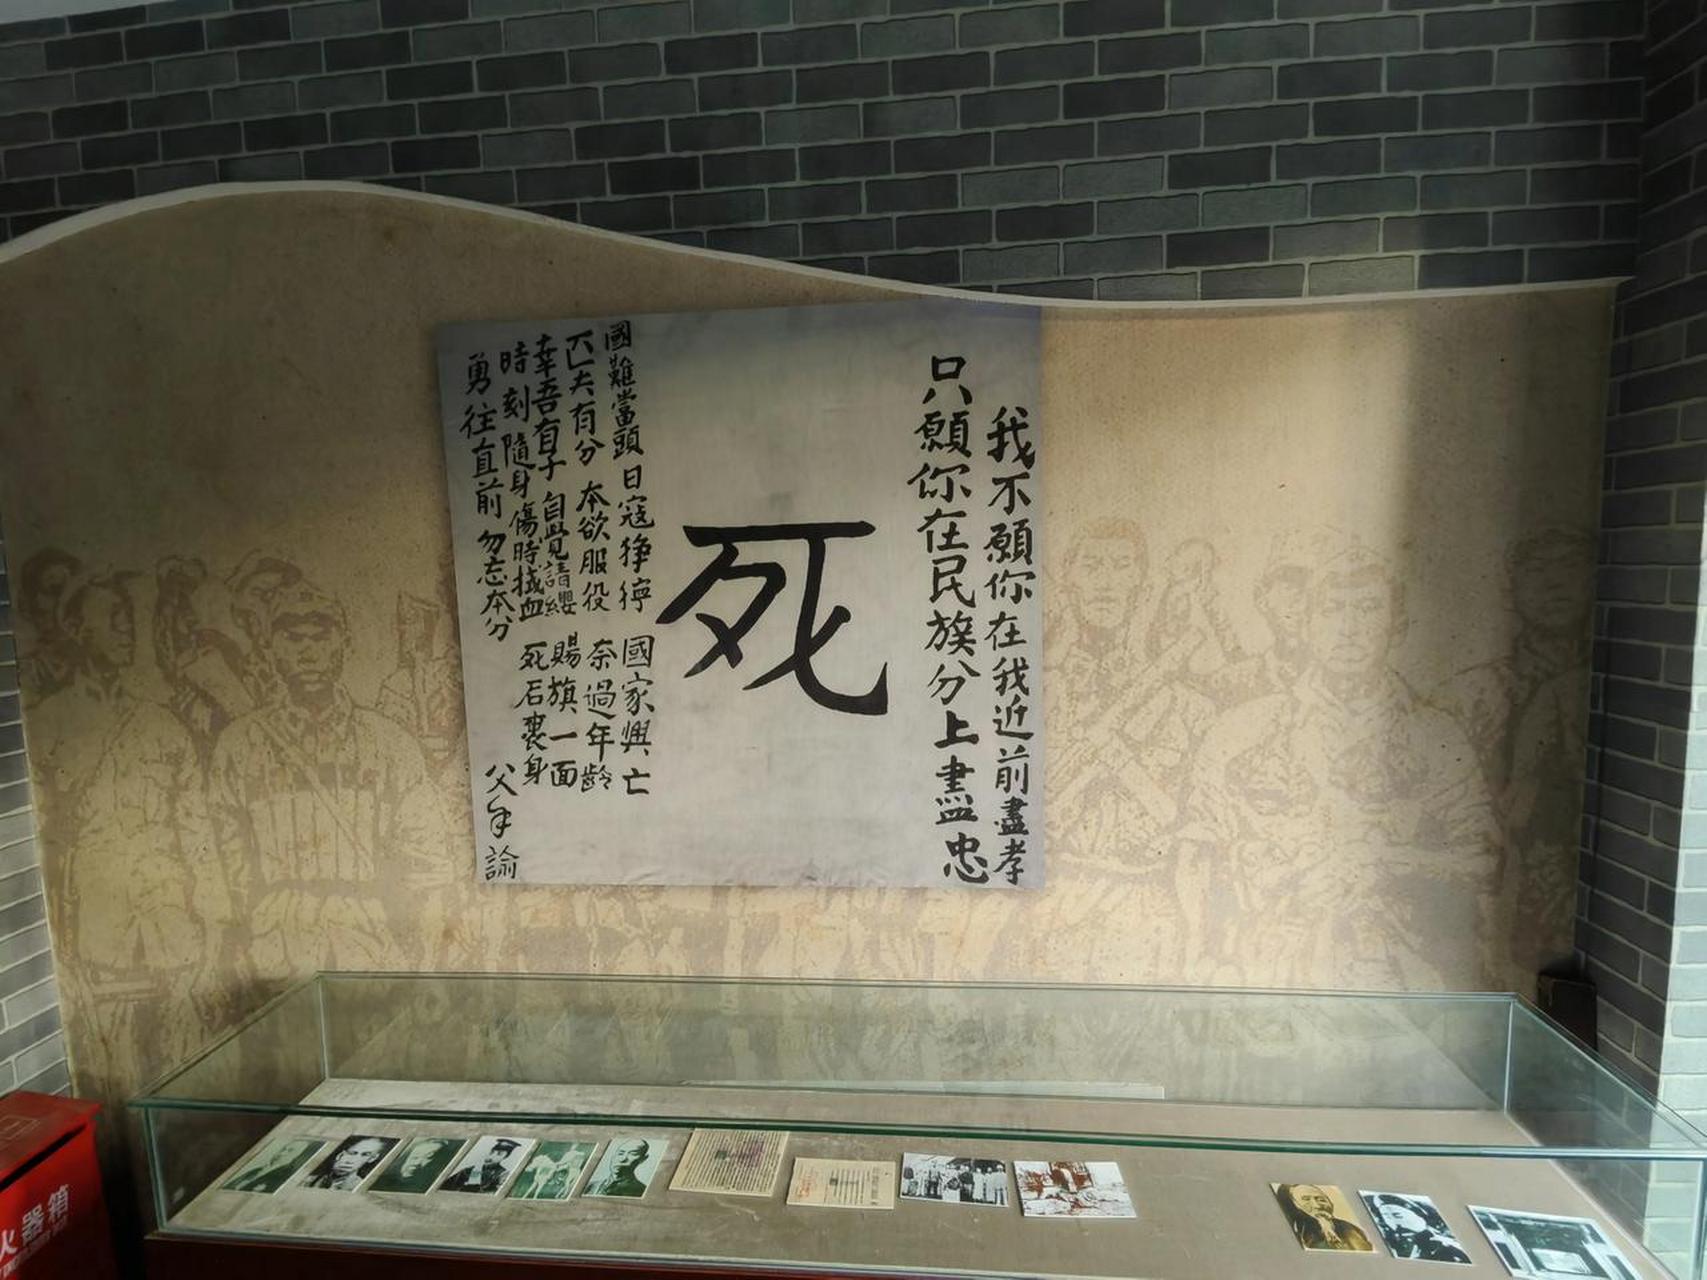 我不願你在我近前盡孝
只願你在民族分上盡忠
死
國難當頭 日寇猙獰 國家興亡
匹夫有分 本欲服役 奈過年齡
幸吾有子 自覺請纓 賜旗一面
時刻隨身 傷時拭血 死后裹身
勇往直前 勿忘本分
父手諭
火器箱